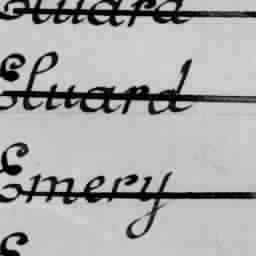 Eluard
Eluard
Emery